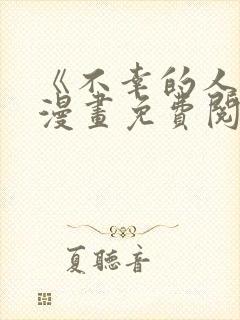 《不幸的人
漫畫免費閱
夏聽音